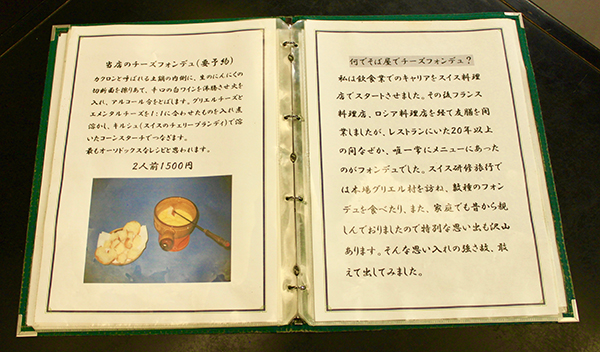 当店のチーズフォンデュ(要予約)
カクロンと呼ばれる土鍋の内側に、生のにんにくの
切断面を擦りあて、辛口の白ワインを沸騰させ火を
入れ、アルコール分をとばします。グリエルチーズと
エメンタルチーズを1:1に合わせたものを入れ煮
溶かし、キルシュ(スイスのチェリーブランディ)で溶
いたコーンスターチでつなぎます。
最もオーソドックスなレシピと思われます。
2人前1500円
何でそば屋でチーズフォンデュ?
私は飲食業でのキャリアをスイス料理
店でスタートさせました。その後フランス
料理店、ロシア料理店を経て
業しましたが、レストランにいた20年以上
の間なぜか、唯一常にメニューにあった
のがフォンデュでした。スイス研修旅行で
は本場グリエル村を訪ね、数種のフォン
デュを食べたり、また、家庭でも昔から親
しんでおりましたので特別な思い出も沢山
あります。そんな思い入れの強さ故、敢
えて出してみました。